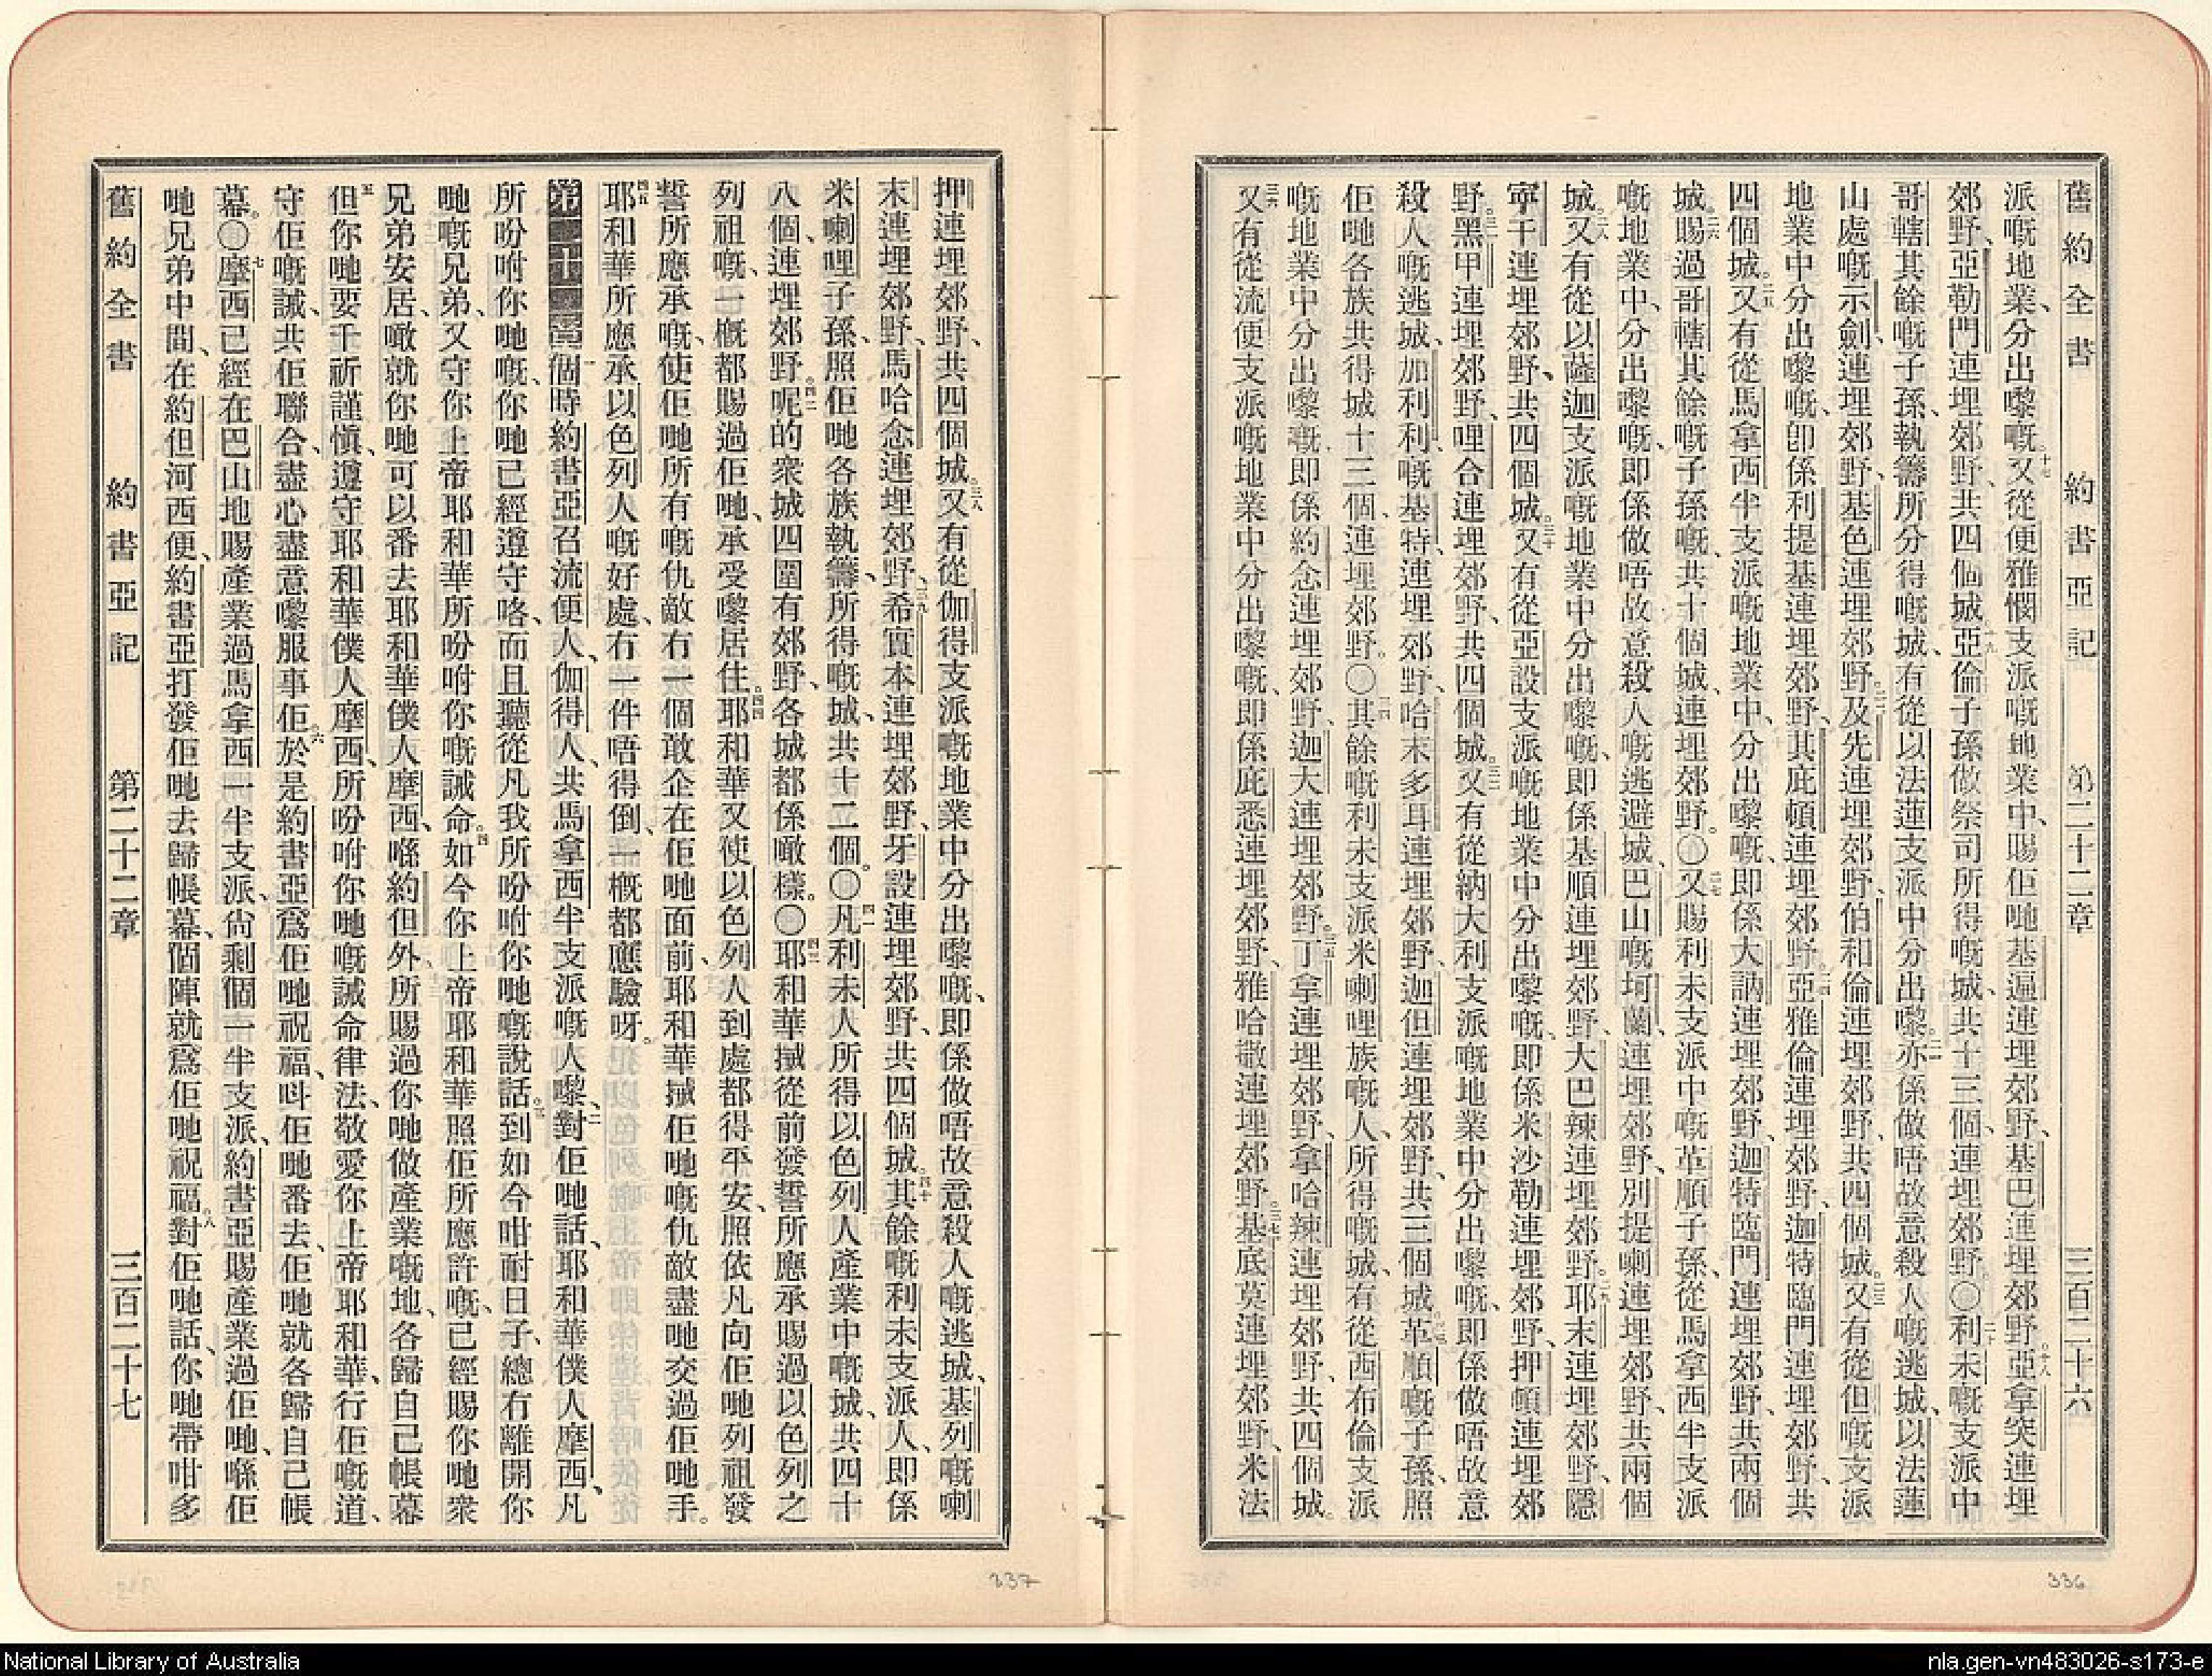 舊約全書 約書亞記 第二十二章 三百二十六
派嘅地業、分出嚟嘅、十七又從便雅憫支派嘅地業中、賜佢哋基遍連埋郊野、基巴連埋郊野。十八亞拿突連埋
郊野、亞勒門連埋郊野、共四個城。十九亞倫子孫做祭司所得嘅城、共十三個、連埋郊野。〇二十利未嘅支派中
哥轄其餘嘅子孫、執籌所分得嘅城、有從以法蓮支派中分出嚟。二一亦係做唔故意殺人嘅逃城、以法蓮
山處嘅示劍、連埋郊野、基色連埋郊野。二二及先連埋郊野、伯和倫連埋郊野、共四個城。二三又有從但嘅支派
地業中分出嚟嘅、即係利提基連埋郊野、其庇頓連埋郊野。二四亞雅倫連埋郊野、迦特臨門連埋郊野、共
四個城。二五又有從馬拿西半支派嘅地業中、分出嚟嘅、即係大訥連埋郊野、迦特臨門連埋郊野、共兩個
城。二六賜過哥轄其餘嘅子孫嘅、共十個城、連埋郊野。〇二七又賜利未支派中嘅革順子孫、從馬拿西半支派
嘅地業中、分出嚟嘅、即係做唔故意殺人嘅逃避城、巴山嘅坷蘭、連埋郊野、別提喇連埋郊野、共兩個
城。二八又有從以薩迦支派嘅地業中分出嚟嘅、即係基順連埋郊野、大巴辣連埋郊野。二九耶末連埋郊野、隱
寧干連埋郊野、共四個城。三十又有從亞設支派嘅地業中分出嚟嘅、即係米沙勒連埋郊野、押頓連埋郊
野。三一黑甲連埋郊野、哩合連埋郊野、共四個城。三二又有從納大利支派嘅地業中分出嚟嘅、即係做唔故意
殺人嘅逃城、加利利嘅基特、連埋郊野、哈末多耳連埋郊野、迦但連埋郊野、共三個城。三三革順嘅子孫、照
佢哋各族共得城十三個、連埋郊野。〇三四其餘嘅利未支派米喇哩族嘅人、所得嘅城、有從西布倫支派
嘅地業中分出嚟嘅、即係約念連埋郊野、迦大連埋郊野。三五丁拿連埋郊野、拿哈辣連埋郊野、共四個城。
三六又有從流便支派嘅地業中分出嚟嘅、即係庇悉連埋郊野、雅哈撒連埋郊野。三七基底莫連埋郊野、米法
336
押連埋郊野、共四個城。三八又有從伽得支派嘅地業中分出嚟嘅、即係做唔故意殺人嘅逃城、基列嘅喇
末連埋郊野、馬哈念連埋郊野、三九希實本連埋郊野、牙設連埋郊野、共四個城。四十其餘嘅利未支派人、即係
米喇哩子孫、照佢哋各族執籌、所得嘅城、共十二個。〇四一凡利未人所得以色列人產業中嘅城、共四十
八個、連埋郊野。四二呢的衆城四圍有郊野、各城都係噉樣。〇四三耶和華摵從前發誓所應承賜過以色列之
列祖嘅、一概都賜過佢哋、承受嚟居住。四四耶和華又使以色列人到處都得平安、照依凡向佢哋列祖發
誓所應承嘅、使佢哋所有嘅仇敵冇一個敢企在佢哋面前、耶和華摵佢哋嘅仇敵盡哋交過佢哋手。
四五耶和華所應承以色列人嘅好處、冇一件唔得倒、一概都應驗呀。
第二十二章 一個時約書亞召流便人、伽得人、共馬拿西半支派嘅人嚟、二對佢哋話、耶和華僕人摩西、凡
所吩咐你哋嘅、你哋已經遵守咯、而且聽從凡我所吩咐你哋嘅說話。三到如今咁耐日子、總冇離開你
哋嘅兄弟、又守你上帝耶和華所吩咐你嘅誡命。四如今你上帝耶和華照佢所應許嘅、已經賜你哋衆
兄弟安居、噉就你哋可以番去耶和華僕人摩西、喺約但外、所賜過你哋做產業嘅地、各歸自己帳幕
五但你哋要千祈謹愼、遵守耶和華僕人摩西、所吩咐你哋嘅誡命律法、敬愛你上帝耶和華、行佢嘅道、
守佢嘅誡、共佢聯合、盡心盡意嚟服事佢。六於是約書亞爲佢哋祝福、呌佢哋番去、佢哋就各歸自己帳
幕。〇七摩西已經在巴山地賜產業過馬拿西一半支派、尙剩個一半支派、約書亞賜產業過佢哋、喺佢
哋兄弟中間、在約但河西便、約書亞打發佢哋去歸帳幕、個陣就爲佢哋祝福。八對佢哋話、你哋帶咁多
舊約全書 約書亞記 第二十二章 三百二十七
337
National Library of Australia
nla.gen-vn483026-s173-e